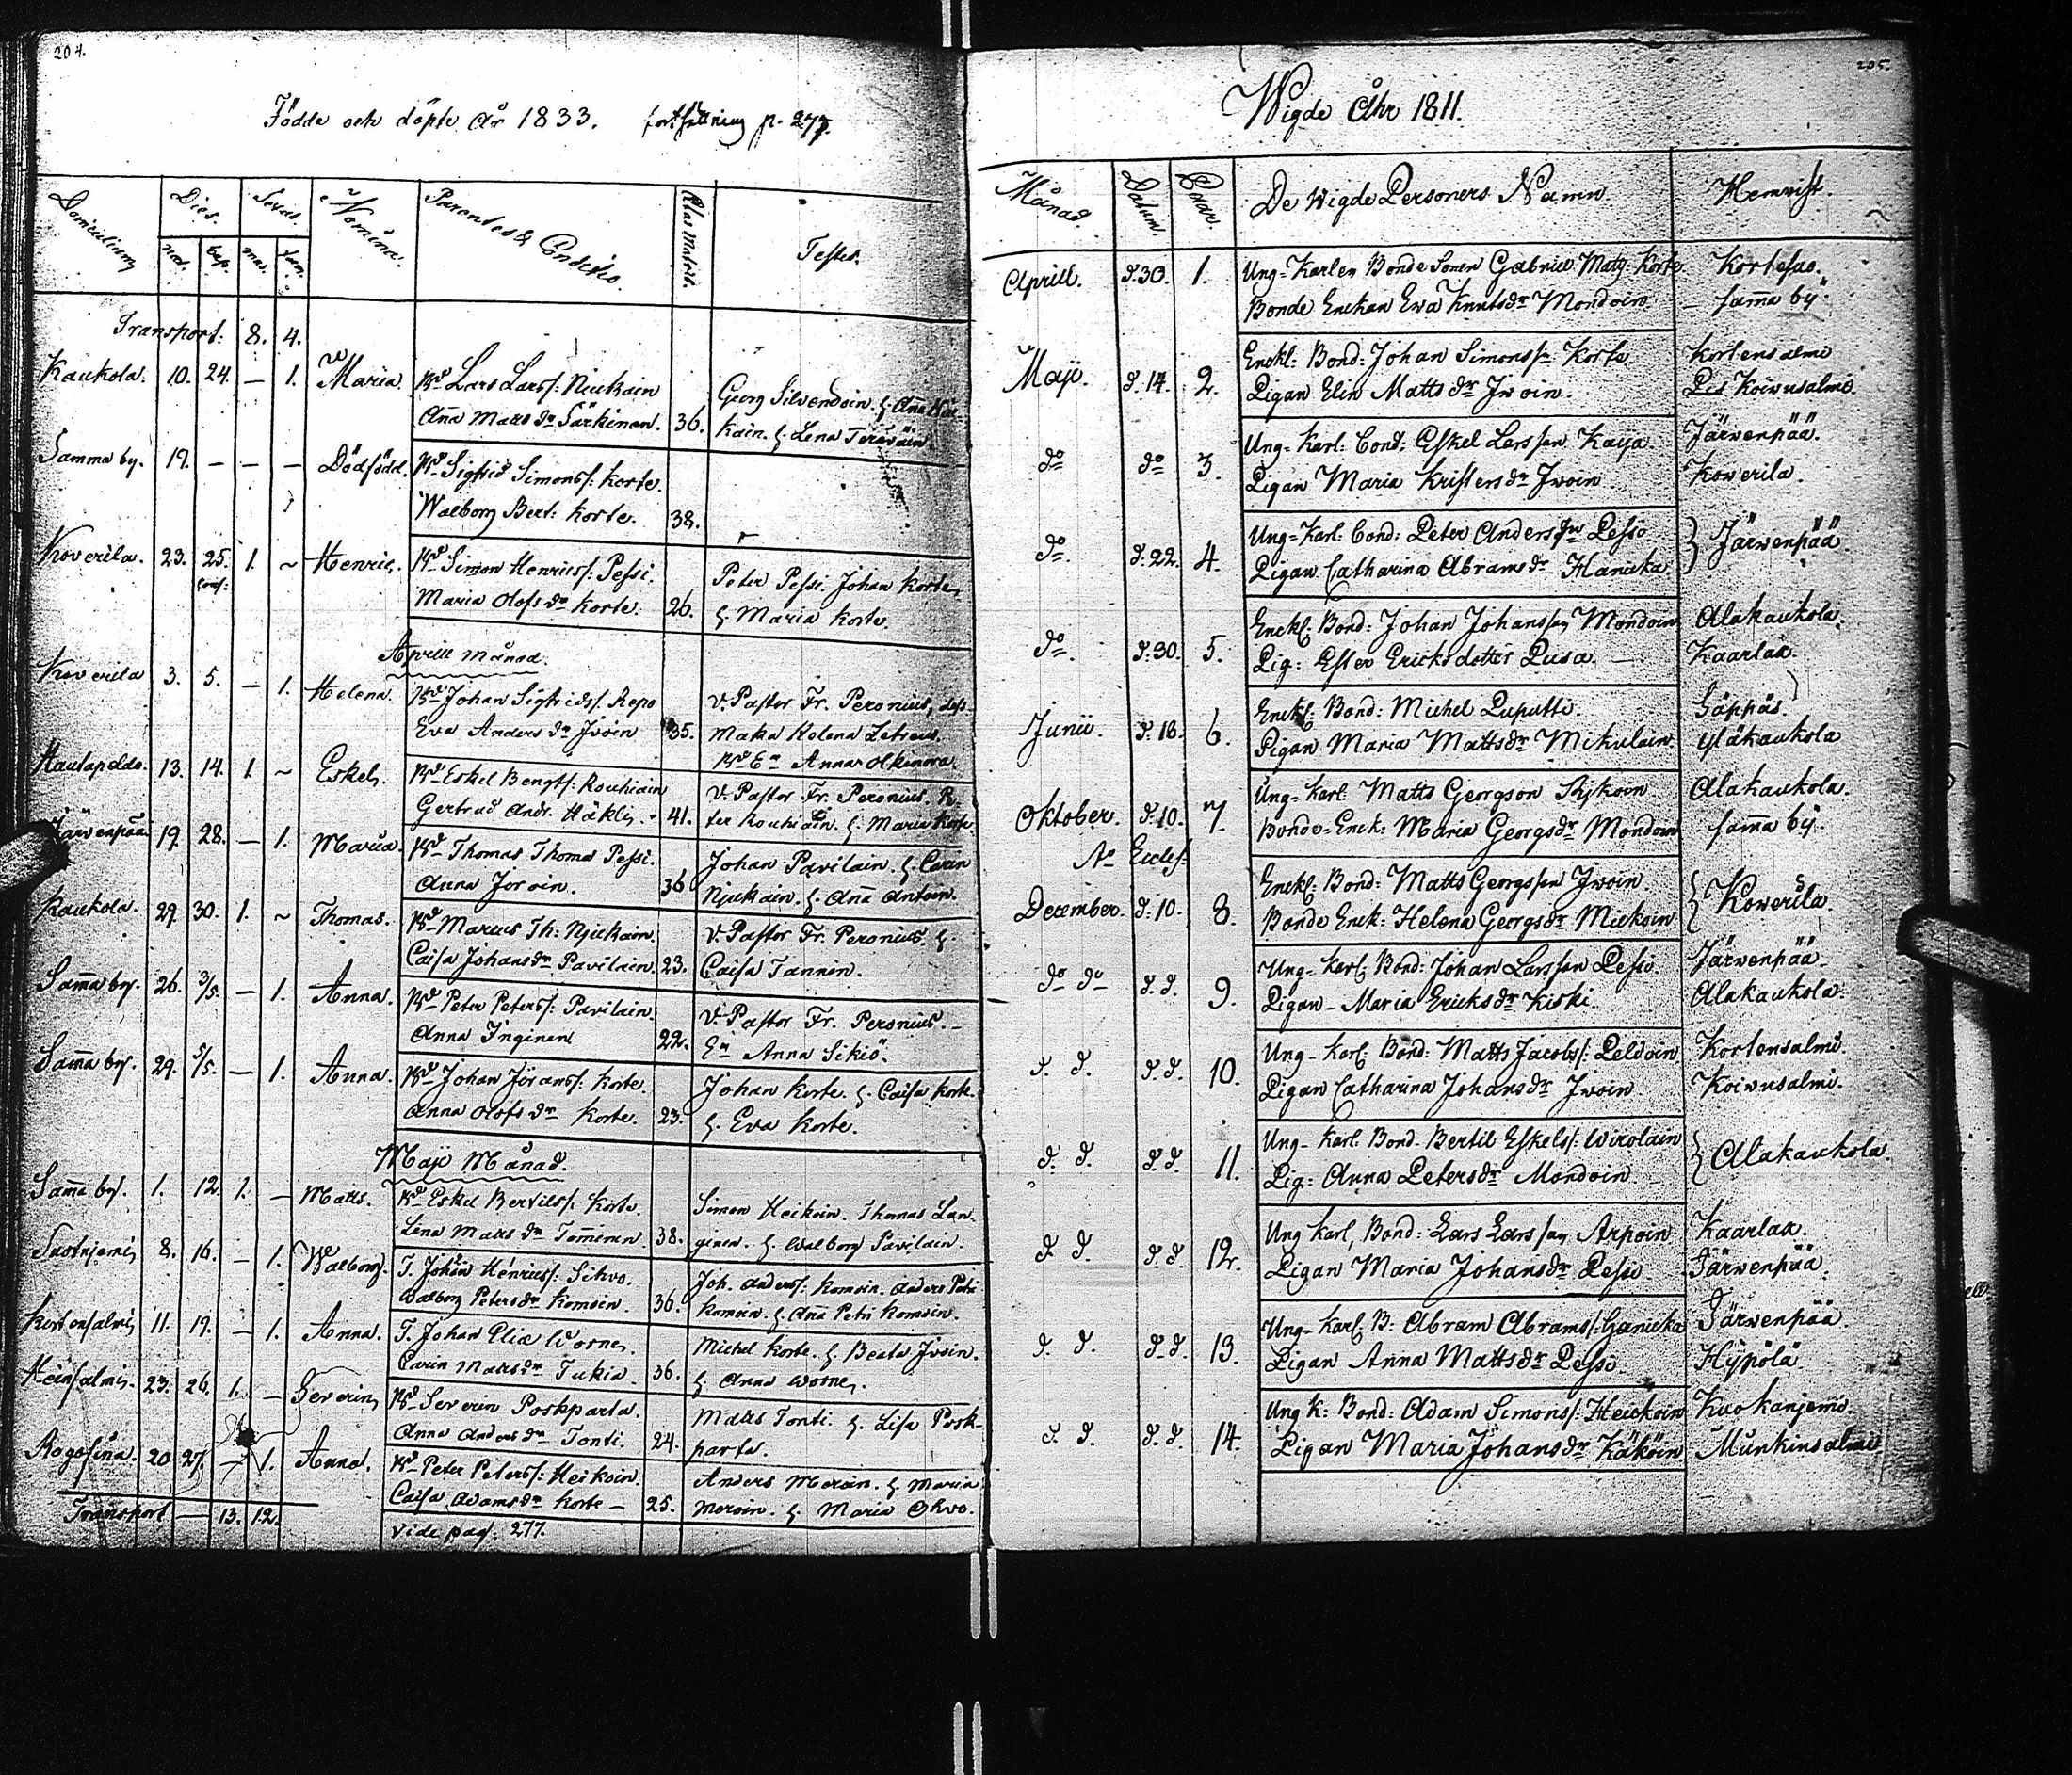 204.
Födde och döpte år 1833. fortsättning p. 277.
Domicilium Dies. Sexus. Nomina. Parentes & Conditio. Ætas Matris. Testes.
nat. bap. mas. fem.
Transport: 8. 4.
Kaukola. 10. 24. — 1. Maria. Bd Lars Larss: Niukain
Anna Matts dr Särkinen. 36. Georg Silvendoin. H. Anna Niu
kain. H. Lena Teräväin
Samma by. 19. — — — Dödfödd. Bd Sigfrid Simonss: Korte.
Walborg Bert: Korte. 38.
Koverila. 23. 25. 1. ~ Henric. Bd Simon Henricss: Pessi.
Maria Olofs dr Korte. 26. Peter Pessi. Johan Korte,
H. Maria Korte.
Aprill månad.
Koverila 3. 5. — 1. Helena. Bd Johan Sigfridss: Repo
Eva Anders dr Ivoin 35. V. Pastor Fr. Peronius, dess
maka Helena Zetreus.
Bd En Anna Olkinora.
Hautapeldo. 13. 14. 1. ~ Eskel. Bd Eskel Bengts: Rouhiain
Gertrud Andr. Häkli. 41. V. Pastor Fr. Peronius. Pe
ter Rouhiain. H. Maria Korte
Järvenpää. 19. 28. — 1. Maria. Bd Thomas Thomæ Pessi.
Anna Ivoin. 36 Johan Pavilain. H. Carin
Njukain. H. Anna Antoin.
Kaukola. 29. 30. 1. ~ Thomas. Bd Marcus Th: Njukain.
Caisa Johans dr Pavilain. 23. V. Pastor Fr. Peronius. H.
Caisa Tannin.
Samma by. 26. 3/5. — 1. Anna. Bd Peter Peterss: Pavilain.
Anna Inginen 22. V. Pastor Fr. Peronius. —
En Anna Sikiö.
Samma by. 29. 5/5. — 1. Anna. Bd Johan Jöranss: Korte.
Anna Olofs dr Korte. 23. Johan Korte. H. Caisa Korte.
H. Eva Korte.
Maji Månad.
Samma by. 1. 12. 1. — Matts. Bd Eskel Bertilss: Korte.
Lena Matts dr Tominen. 38. Simon Heikoin. Thomas Lan-
ginen. H. Walborg Pavilain.
8. 16. — 1. Walborg. T. Johan Henricss: Sikvo.
Walborg Peters dr Komoin. 36. Joh. Anderss: Komoin. Anders Petri
Komoin. H. Anna Petri Komoin.
Kortensalmi 11. 19. — 1. Anna. T. Johan Eliæ Worne.
Carin Matts dr Tukia. 36. Michel Korte. H. Beata Ivoin.
H. Anna Worne.
Heinsalmi. 23. 26. 1. — Severin, Bd Severin Poskparta.
Anna Anders dr Tonti. 24. Matts Tonti. H. Lisa Posk-
parta.
Rogosina. 20 27. — 1. Anna. Bd Peter Peterss: Heikoin.
Caisa Adams dr Korte — 25. Anders Meroin. H. Maria
Meroin. H. Maria Okvo.
Transport — 13. 12.
vide pag: 277.
205.
Wigde Åhr 1811.
Månad. Datum. Paar. De Wigde Personers Namn. Hemvist.
Aprill. d. 30. 1. Ung-Karlen Bonde Sonen Gabriel Matts: Korte Kortesas.
Bonde Enckan Ewa Knuts dr Mondoin — samma by.
Maji. d. 14. 2. Enckl: Bond: Johan Simonss: Korte. Kortensalmi
Pigan Elin Matts dr Jwoin. Koiwusalmi.
do do 3. Ung-Karl: Bond: Eskel Larsson Kaija. Järwenpää.
Pigan Maria Kristers dr Jwoin. Kowerila.
do d. 22. 4. Ung-Karl: Bond: Peter Andersson Pessi Järwenpää
Pigan Catharina Abrams dr Hanicka.
do. d. 30. 5. Enckl: Bond: Johan Johansson Mondoin Alakaukola.
Pig: Ester Ericks dotter Pusa. — Kaarlax.
Junii. d. 18. 6. Enckl: Bond: Michel Puputti. Säppäs.
Pigan Maria Matts dr Mikulain. Yläkaukola
Oktober. d. 10. 7. Ung-Karl: Matts Georgson Rykoin Alakaukola.
Bonde-Enck: Maria Georgs dr Mondoin samma by.
Ao Eccles:
December. d. 10. 8. Enckl: Bond: Matts Georgsson Jwoin Kowerila.
Bonde Enck: Helena Georgs dr Mickoin
do do d. d. 9. Ung-Karl: Bond: Johan Larsson Pessi. Järwenpää.
Pigan — Maria Ericks dr Kiski. Alakaukola.
d. d. d. d. 10. Ung-Karl: Bond: Matts Jacobs: Peldoin Kortensalmi.
Pigan Catharina Johans dr Jwoin Koiwusalmi.
d. d. d. d. 11. Ung-Karl: Bond. Bertil Eskels: Wirolain Alakaukola.
Pig: Anna Peters dr Mondoin
d. d. d. d. 12. Ung Karl, Bond: Lars Larsson Arpoin Kaarlax.
Pigan Maria Johans dr Pessi Järwenpää.
d. d. d. d. 13. Ung-Karl: B: Abram Abrams: Hanicka Järwenpää.
Pigan Anna Matts dr Pessi. Hypölä
d. d. d. d. 14. Ung K: Bond: Adam Simons: Heickoin Kuokanjemi.
Pigan Maria Johans dr Käköin Munkinsalmi